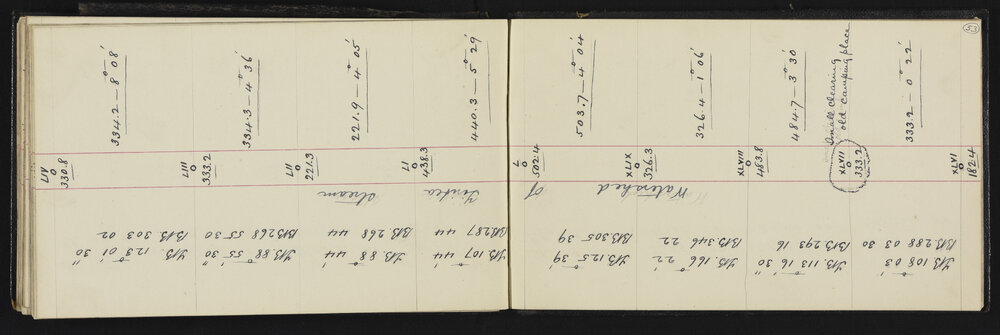 53
182.4
O
XLVI
333.2 — 0° 22'
FB. 108° 03'
BB 288 03 30
333.2
O
XLVII
Small clearing
old camping place
484.7 — 3° 30'
FB. 113° 16' 30"
BB 293 16
483.8
O
XLVIII
326.4 — 1° 06'
FB. 166° 22'
BB. 346 22
326.3
O
XLIX
503.7 — 4° 04'
FB. 125° 39'
BB. 305 39
502.4
O
L
440.3 — 5° 29'
FB. 107° 44'
BB 287 44
438.3
O
LI
221.9 — 4° 05'
FB. 88° 44'
BB. 268 44
221.3
O
LII
334.3 — 4° 36'
FB. 88° 55' 30"
BB 268 55 30
333.2
O
LIII
334.2 — 8° 08'
FB. 123° 01' 30"
BB 303 02
330.8
O
LIV
Watershed
of
Tiritea
stream